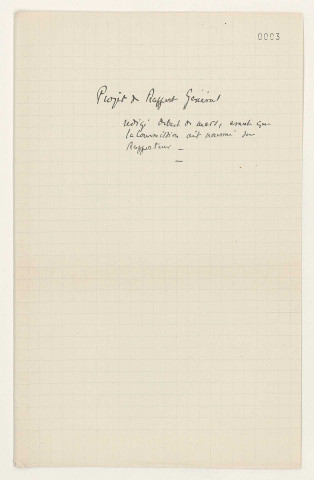 0003
Projet de Rapport Général
rédigé début de mars, avant que
la Commission ait nommé son
Rapporteur —
—